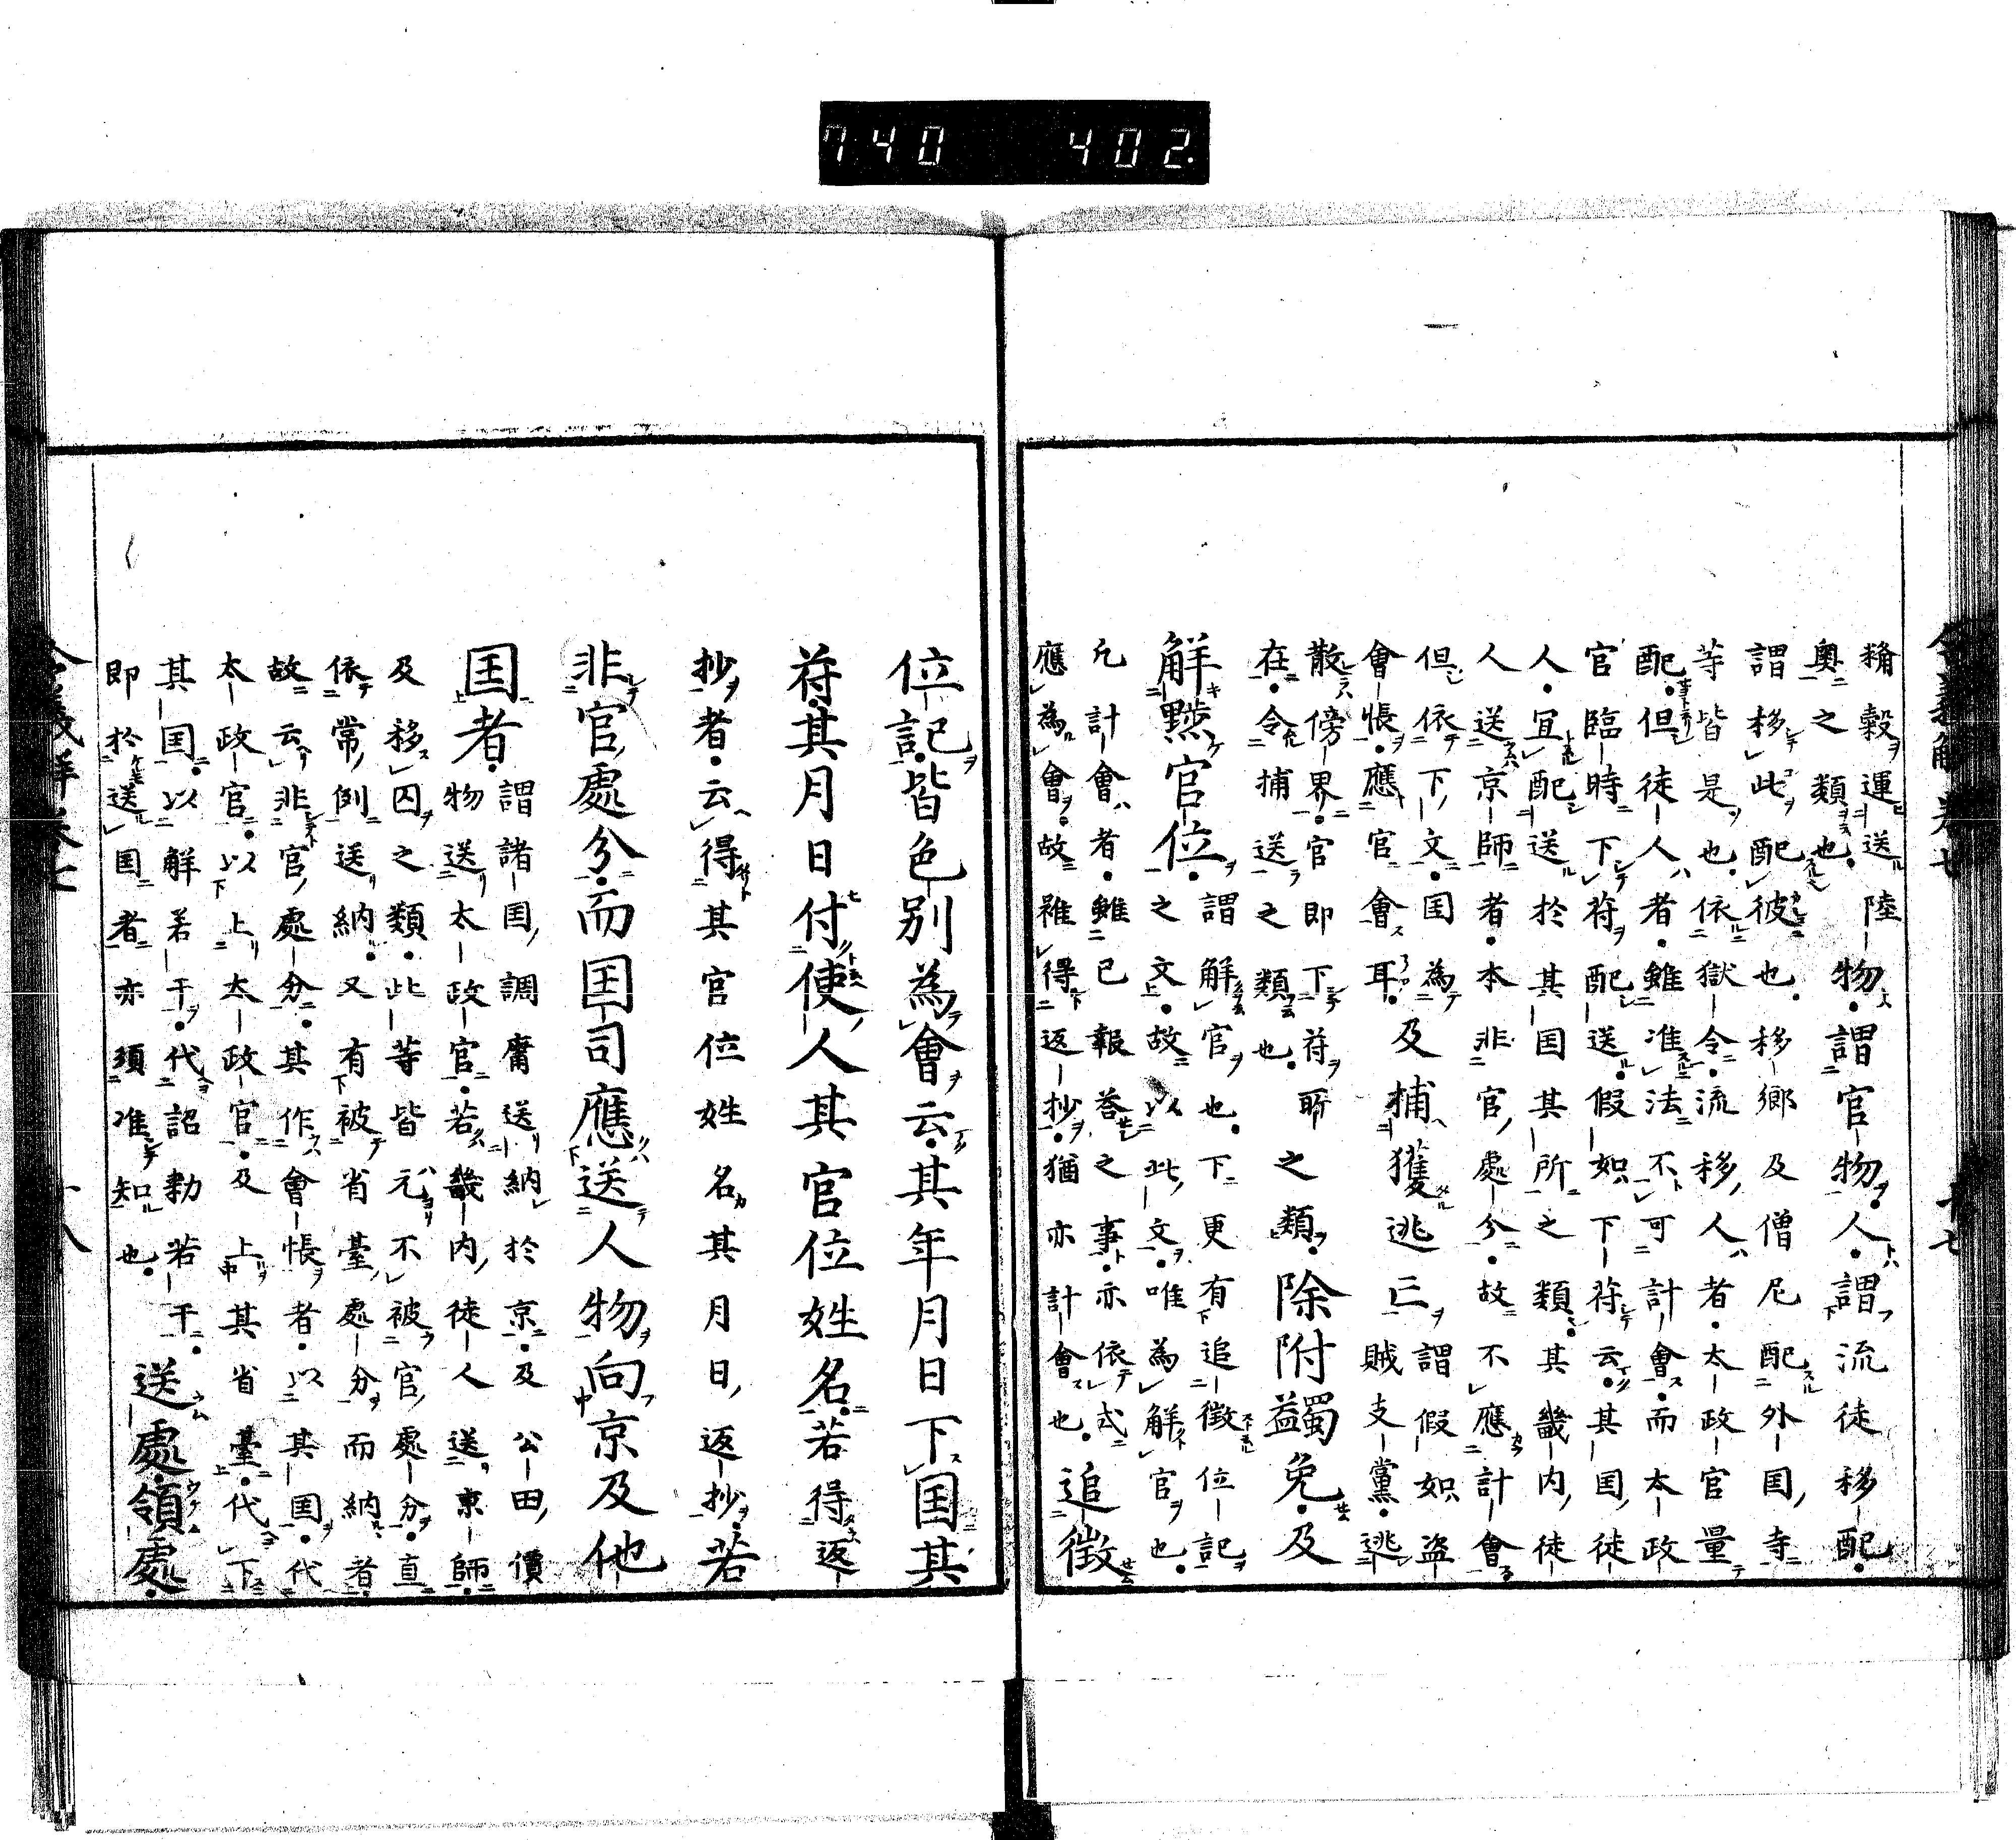 740 402
令義解卷七 十七
糒穀運送陸
奥之類也。
物。謂官物。人。謂流徒移配。
謂移此配彼也。移郷及僧尼配外囯寺
等皆是也。依獄令。流移人者。太政官量
配。但徒人者。雖准法不可計會。而太政
官臨時下符配送。假如下符云。其囯徒
人。宜配送於其囯其所之類。其畿内徒
人送京師者。本非官處分。故不應計會。
但依下文。囯為
會帳。應官會耳。
及捕獲逃亡
謂假如盗
賊支黨逃
散傍界。官即下符所
在。令捕送之類也。
之類。除附蠲免。及
解黜官位。
謂解官也。下更有追徴位記
之文。故以此文。唯為解官也。
凡計會者。雖已報答之事。亦依式
應為會。故雖得返抄。猶亦計會也。
追徴
位記。皆色別為會云。其年月日下囯其
符。其月日付使人其官位姓名。若得返
抄者。云得其官位姓名其月日返抄。若
非官處分。而囯司應送人物向京及他
囯者。
謂諸囯調庸送納於京。及公田價
物送太政官。若畿内徒人送京師。
及移囚之類。此等皆元不被官處分。直
依常例送納。又有被省臺處分而納者。
故云非官處分。其作會帳者。以其囯代
太政官。以上太政官。及上其省臺。代下
其囯。以解若干。代詔勅若干。
即於送囯者。亦須准知也。
送處。領處。
令義解卷七 十八